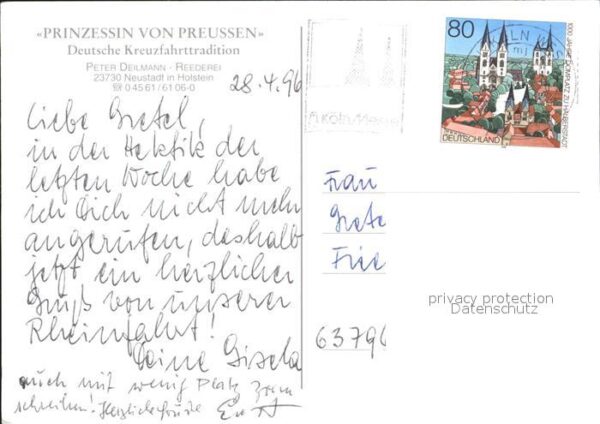 «PRINZESSIN VON PREUSSEN»
Deutsche Kreuzfahrttradition
PETER DEILMANN - REEDEREI
23730 Neustadt in Holstein
☎ 0 45 61 / 61 06-0
28.4.96
Liebe Gretel,
in der Hektik der
letzten Woche habe
ich Dich nicht mehr
angerufen, deshalb
jetzt ein herzlicher
Gruß von unserer
Rheinfahrt!
Deine Gisela
auch mit wenig Platz zum
schreiben! Herzliche Grüße
80
DEUTSCHLAND
KölnMesse
Frau
Grete
Frie
privacy protection
Datenschutz
63796